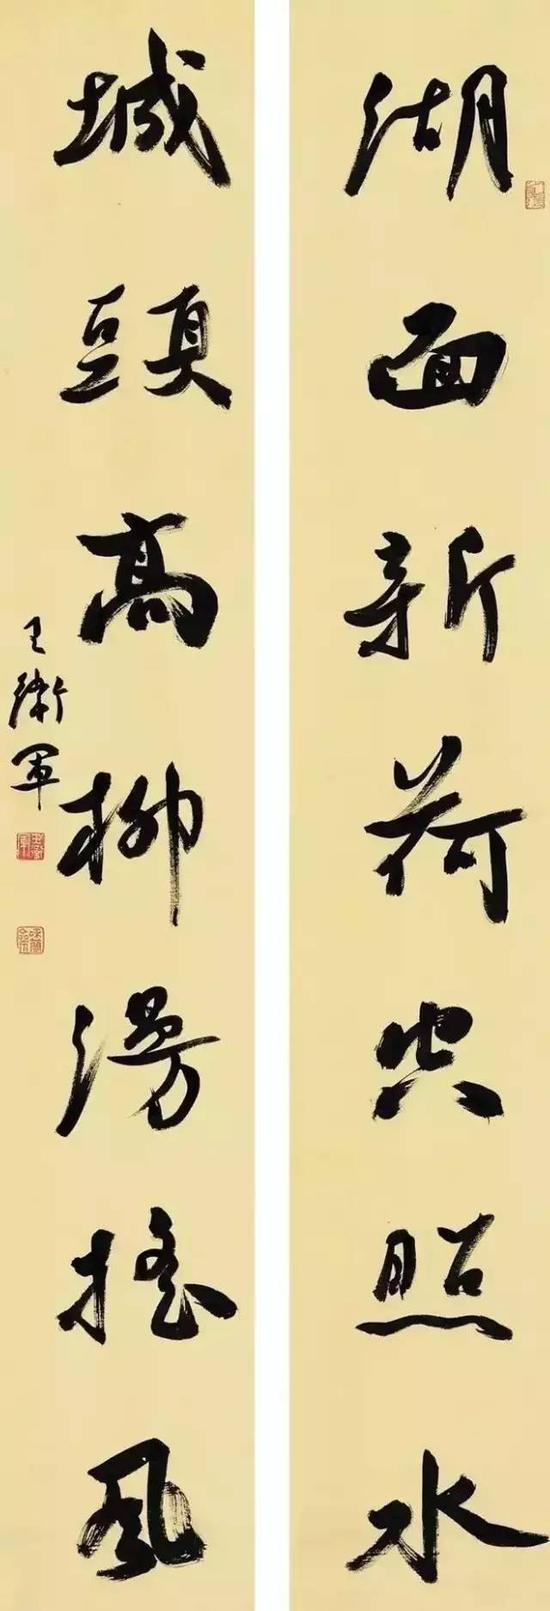 湖面新荷空照水
城頭高柳漫搖風
王衛軍